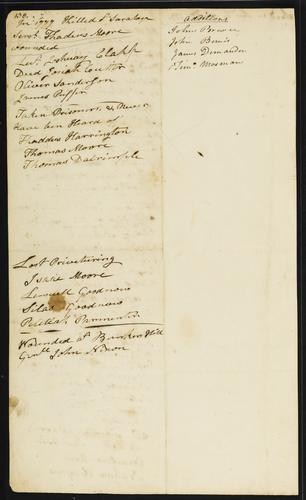 In 1777 Killed at Saratoga
Serjt Thadeus Moore
wounded
Lut Joshuay Clark
Dead Josiah Cutter
Oliver Sanderson
James Puffin
Taken Prisoners & Never
have ben Heard of
Thaddus Harrington
Thomas Moore
Thomas Dalrimple
Lost Priveturing
Isaac Moore
Lewcell Goodnow
Silas Goodnow
Peellah Parmenter
Wounded at Bunker Hill
Genll John Nixon
Additions
John Brewer
John Bemis
James Demander
Moseman